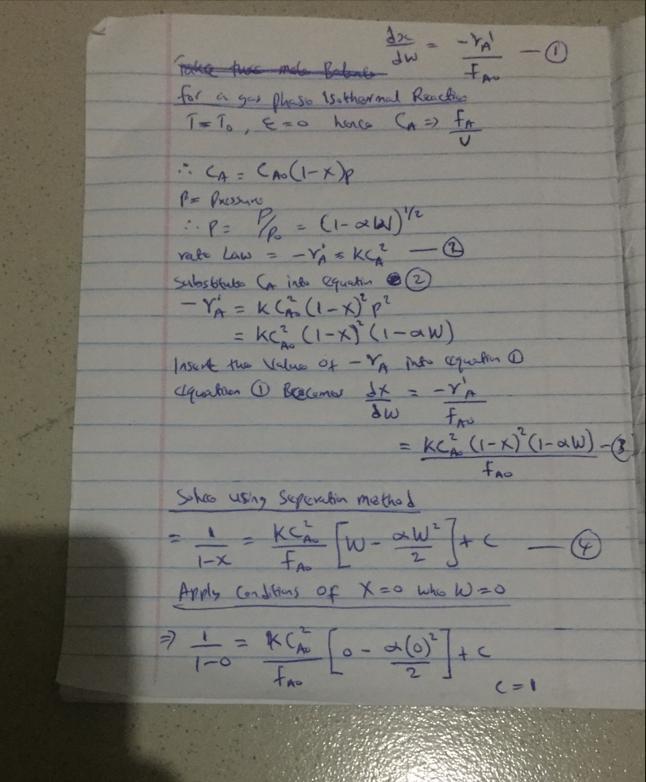 dx/dw = -rA'/fAo — ①
Take this mole Balance
for a gas phase Isothermal Reaction
T = To, ε = 0 hence CA => fA/U
∴ CA = CAo(1-x)p
P = Pressure
∴ P = P/Po = (1-αW)^1/2
rate Law = -rA' = KCA² — ②
Substitute CA into equation ②
-rA' = KCAo²(1-X)²p²
= KCAo²(1-X)²(1-αW)
Insert the Value of -rA into equation ①
equation ① Becomes dx/dw = -r'A/fAo
= KCAo²(1-X)²(1-αW)/fAo — ③
Solve using Seperation method
= 1/1-x = KCAo²/fAo [W - αW²/2] + C — ④
Apply Conditions of X=0 when W=0
=> 1/1-0 = KCAo²/fAo [0 - α(0)²/2] + C
C = 1